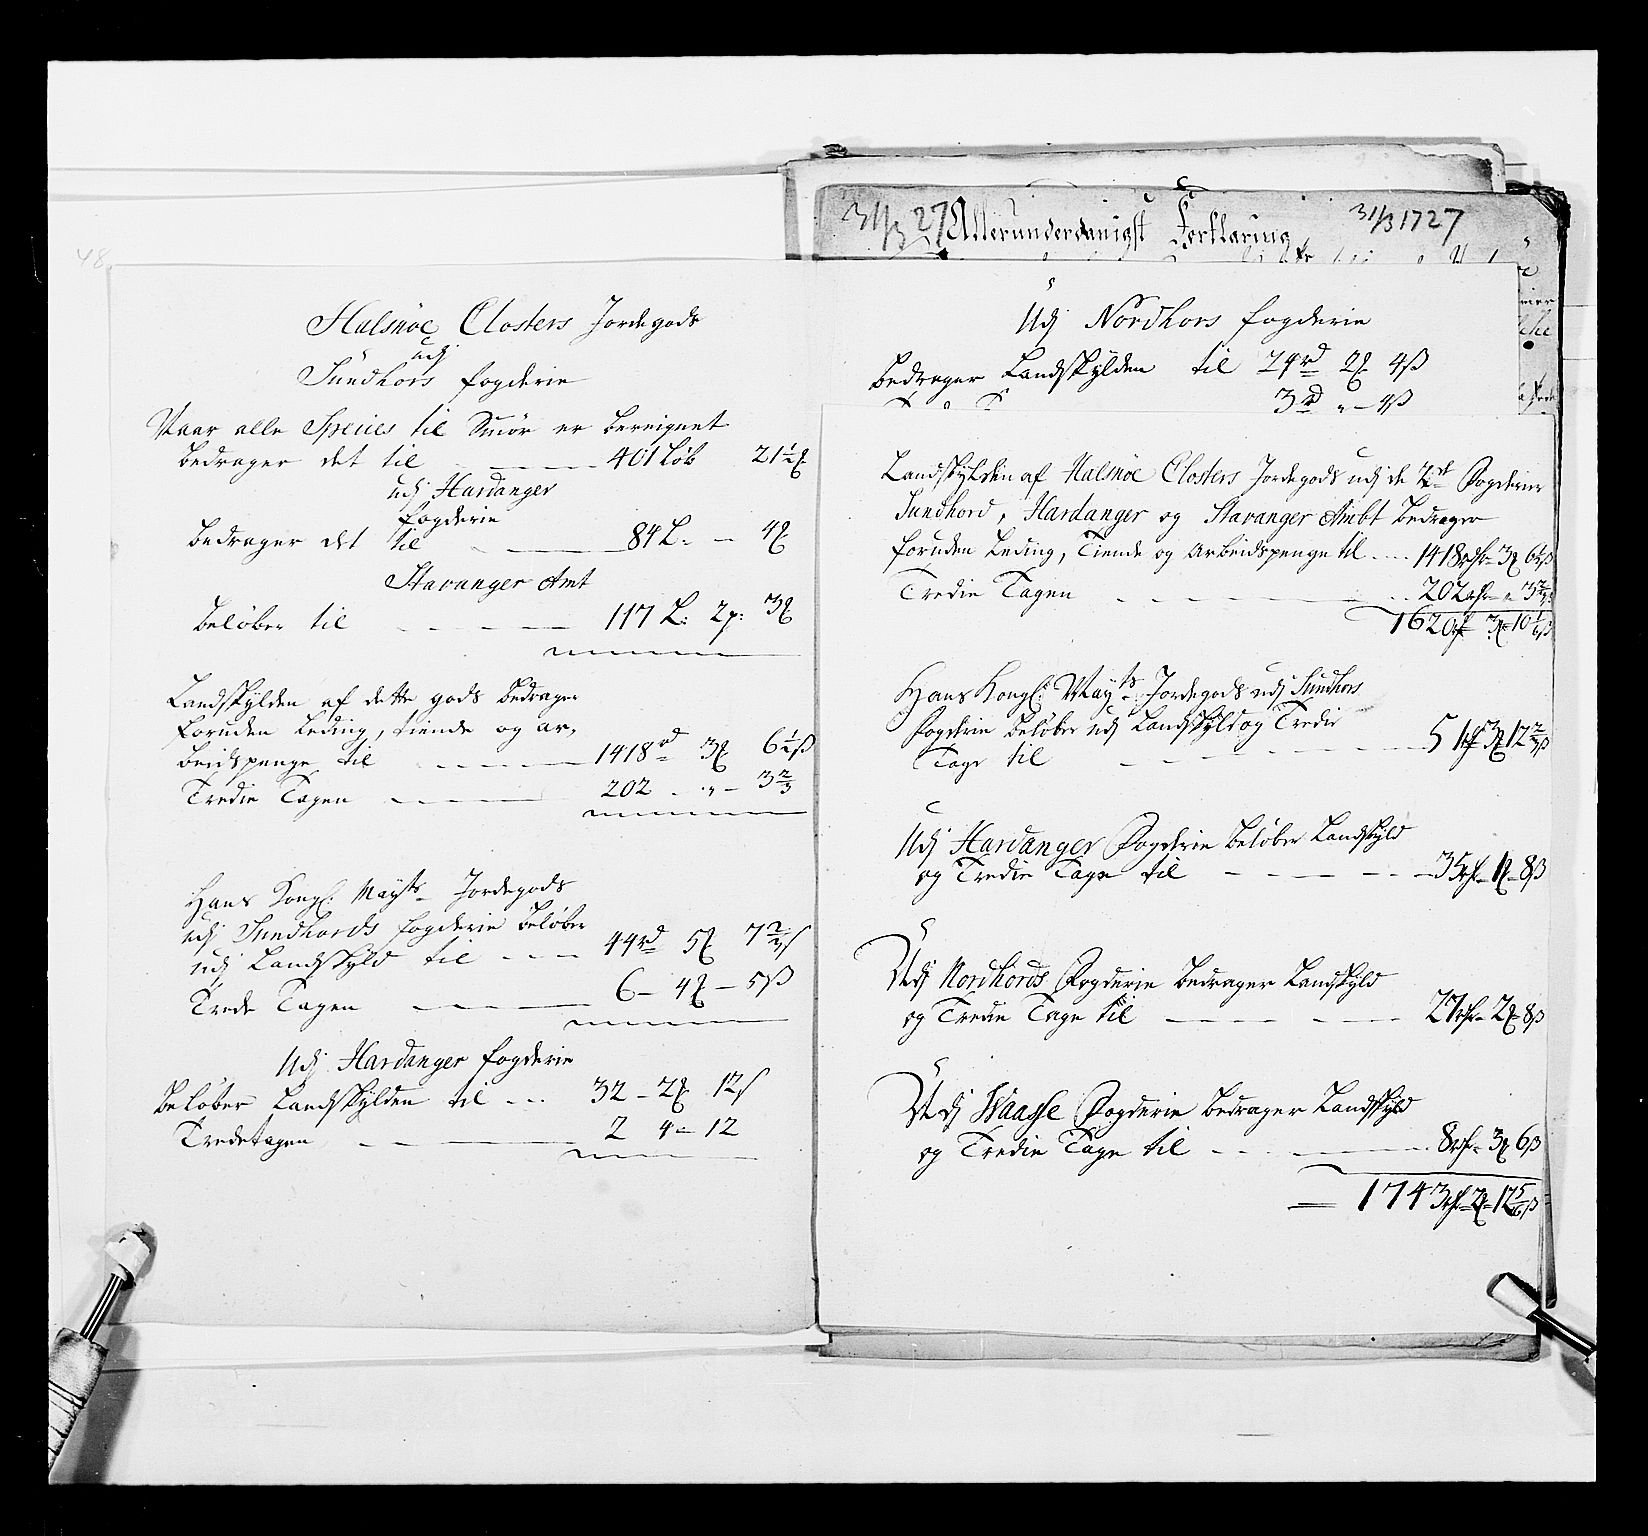 48
Halsnöe Closters Jordegods
udj
Sundhors fogderie
Naar alle Species til Smör er bereignet
bedrager det til 401 Løb 21½ ℔
udj Hardanger
fogderie
bedrager det til 84 L: - 4 ℔
Stavanger Amt
beløber til 117 L: 2p: 3 ℔
Landskylden af dette gods bedrager
foruden leding, tiende og ar,
beidspenge til 1418 rd 3 ℔ 6½ ß
Tredie Tagen 202 - „ - 3⅔
Hans Kongl: Mayts Jordegods
udj Sundhords fogderie beløber
udj Landskyld til 44 rd 5 ℔ 7⅔ ß
Trede Tagen 6 - 4 ℔ - 5 ß
Udj Hardanger fogderie
beløber Landskylden til 32 - 2 ℔ 12 ß
Tredetagen 2 4 - 12
31/3 27 Allerunderdanigst Forklaring 31/3 1727
Udj Nordhors fogderie
bedrager Landskylden til 24 rd 2 ℔ 4 ß
3 rd „ - 4 ß
Landskylden af Halsnöe Closters Jordegods udj de Fogderier
Sundhord, Hardanger og Stavanger Ambt bedrager
foruden Leding, Tiende og Arbeidspenge til 1418 rdr 3 ℔ 6½ ß
Tredie Tagen 202 rdr „ 3⅔ ß
1620 rdr 3 ℔ 10⅙ ß
Hans Kongl: Mayts Jordegods udj Sundhors
Fogderie beløber udj Landskyld og Tredie
Tage til 51 rdr 3 ℔ 12⅔ ß
Udj Hardanger Fogderie beløber Landskyld
og Tredie Tage til 35 rdr 1 ℔ 8 ß
Udj Nordhords Fogderie bedrager Landskyld
og Tredie Tage til 27 rdr 2 ℔ 8 ß
Udj Waagse Fogderie bedrager Landskyld
og Tredie Tage til 8 rdr 3 ℔ 6 ß
1743 rdr 2 ℔ 12⅚ ß